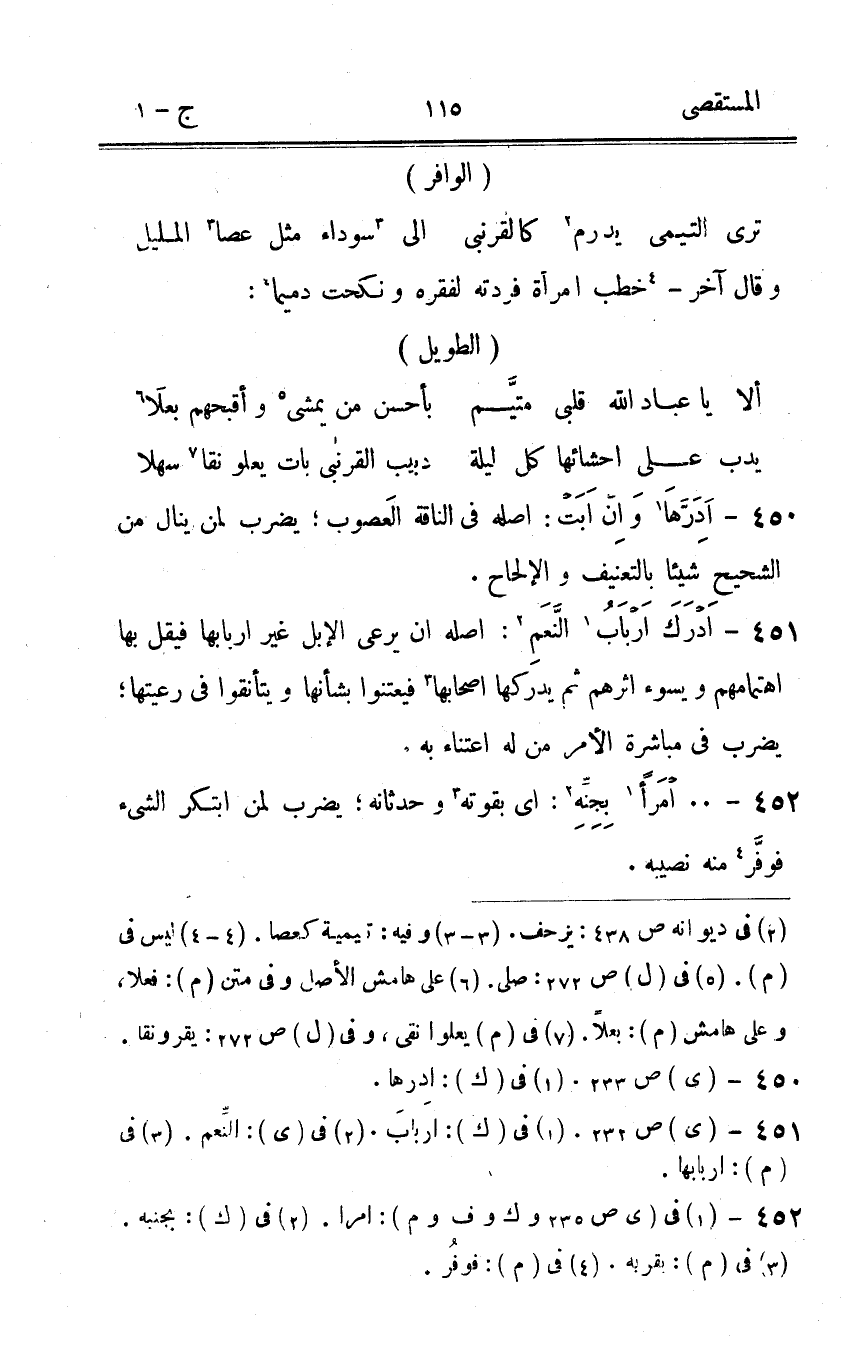 المستقصى ١١٥ ج - ١
( الوافر )
ترى التيمى يدرم٢ كالقرنبى الى ٣سوداء مثل عصا٣ المليل
و قال آخر - ٤خطب امرأة فردته لفقره و نكحت دميما٤ :
( الطويل )
ألا يا عباد الله قلبى متيَّم بأحسن من يمشى٥ و أقبحهم بعلا٦
يدب على احشائها كل ليلة دبيب القرنبى بات يعلو نقا٧ سهلا
٤٥٠ - اَدِرَّهَا١ وَ اِنْ اَبَتْ : اصله فى الناقة العَصوب ؛ يضرب لمن ينال من
الشحيح شيئا بالتعنيف و الإلحاح .
٤٥١ - اَدْرَكَ اَرْبَابُ١ النَّعَمِ٢ : اصله ان يرعى الإبل غير اربابها فيقل بها
اهتمامهم و يسوء اثرهم ثم يدركها اصحابها٣ فيعتنوا بشأنها و يتأنقوا فى رعيتها ؛
يضرب فى مباشرة الأمر من له اعتناء به .
٤٥٢ - ٠٠ اَمْرًا١ بِجِنِّهِ٢ : اى بقوته٣ و حدثانه ؛ يضرب لمن ابتكر الشىء
فوفَّر٤ منه نصيبه .
(٢) فى ديوانه ص ٤٣٨ : يزحف . (٣-٣) و فيه : تيمية كعصا . (٤-٤) ليس فى
(م) . (٥) فى (ل) ص ٢٧٢ : صلى . (٦) على هامش الأصل و فى متن (م) : فعلا ،
و على هامش (م) : بعلاً . (٧) فى (م) يعلوا نقى ، و فى (ل) ص ٢٧٢ : يقرو نقا .
٤٥٠ - (ى) ص ٢٣٣ . (١) فى (ك) : اِدرها .
٤٥١ - (ى) ص ٢٣٢ . (١) فى (ك) : اربابَ . (٢) فى (ى) : النِّعم . (٣) فى
(م) : اربابها .
٤٥٢ - (١) فى (ى ص ٢٣٥ و ك و ف و م) : امرا . (٢) فى (ك) : بجنبه .
(٣) فى (م) : بقربه . (٤) فى (م) : فوفُر .